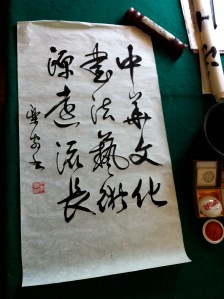 中華文化
書法藝術
源遠流長